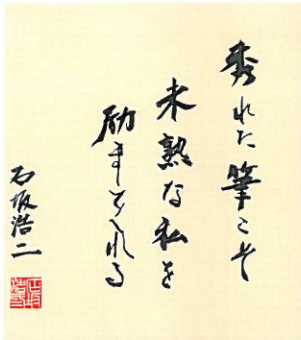 秀れた筆こそ
未熟な私を
励ましてくれる
石坂浩二